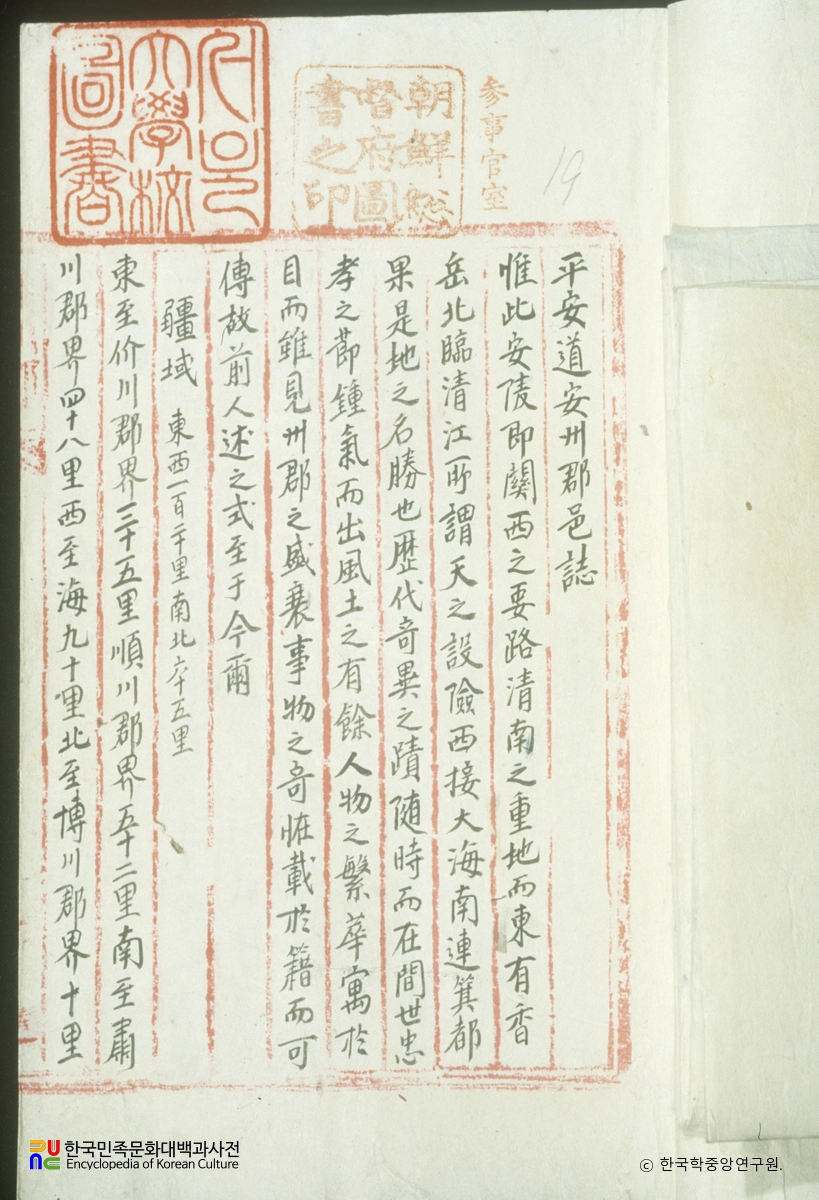 平安道安州郡邑誌
惟此安陵即関西之要路清南之重地而東有香
岳北臨清江所謂天之設險西接大海南連箕都
果是地之名勝也歷代奇異之蹟隨時而在間世忠
孝之節鍾氣而出風土之有餘人物之繁華寓於
目而雖見州郡之盛衰事物之奇恠載於籍而可
傳故前人述之式至于今爾
疆域 東西一百二十里南北六十五里
東至价川郡界三十五里順川郡界五十二里南至肅
川郡界四十八里西至海九十里北至博川郡界十里
参事官室
朝鮮総
督府圖
書之印
大學校
圖書
19
한국민족문화대백과사전
Encyclopedia of Korean Culture
ⓒ 한국학중앙연구원.